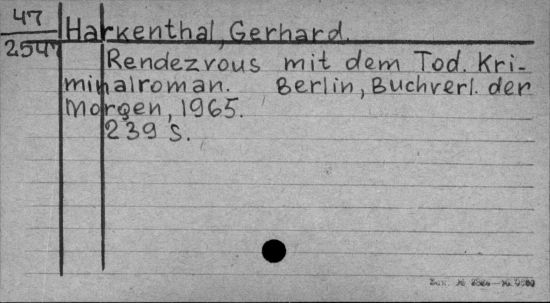 47
2547
Harkenthal, Gerhard.
Rendezvous mit dem Tod. Kri-
minalroman. Berlin, Buchverl. der
Morgen, 1965.
239 S.